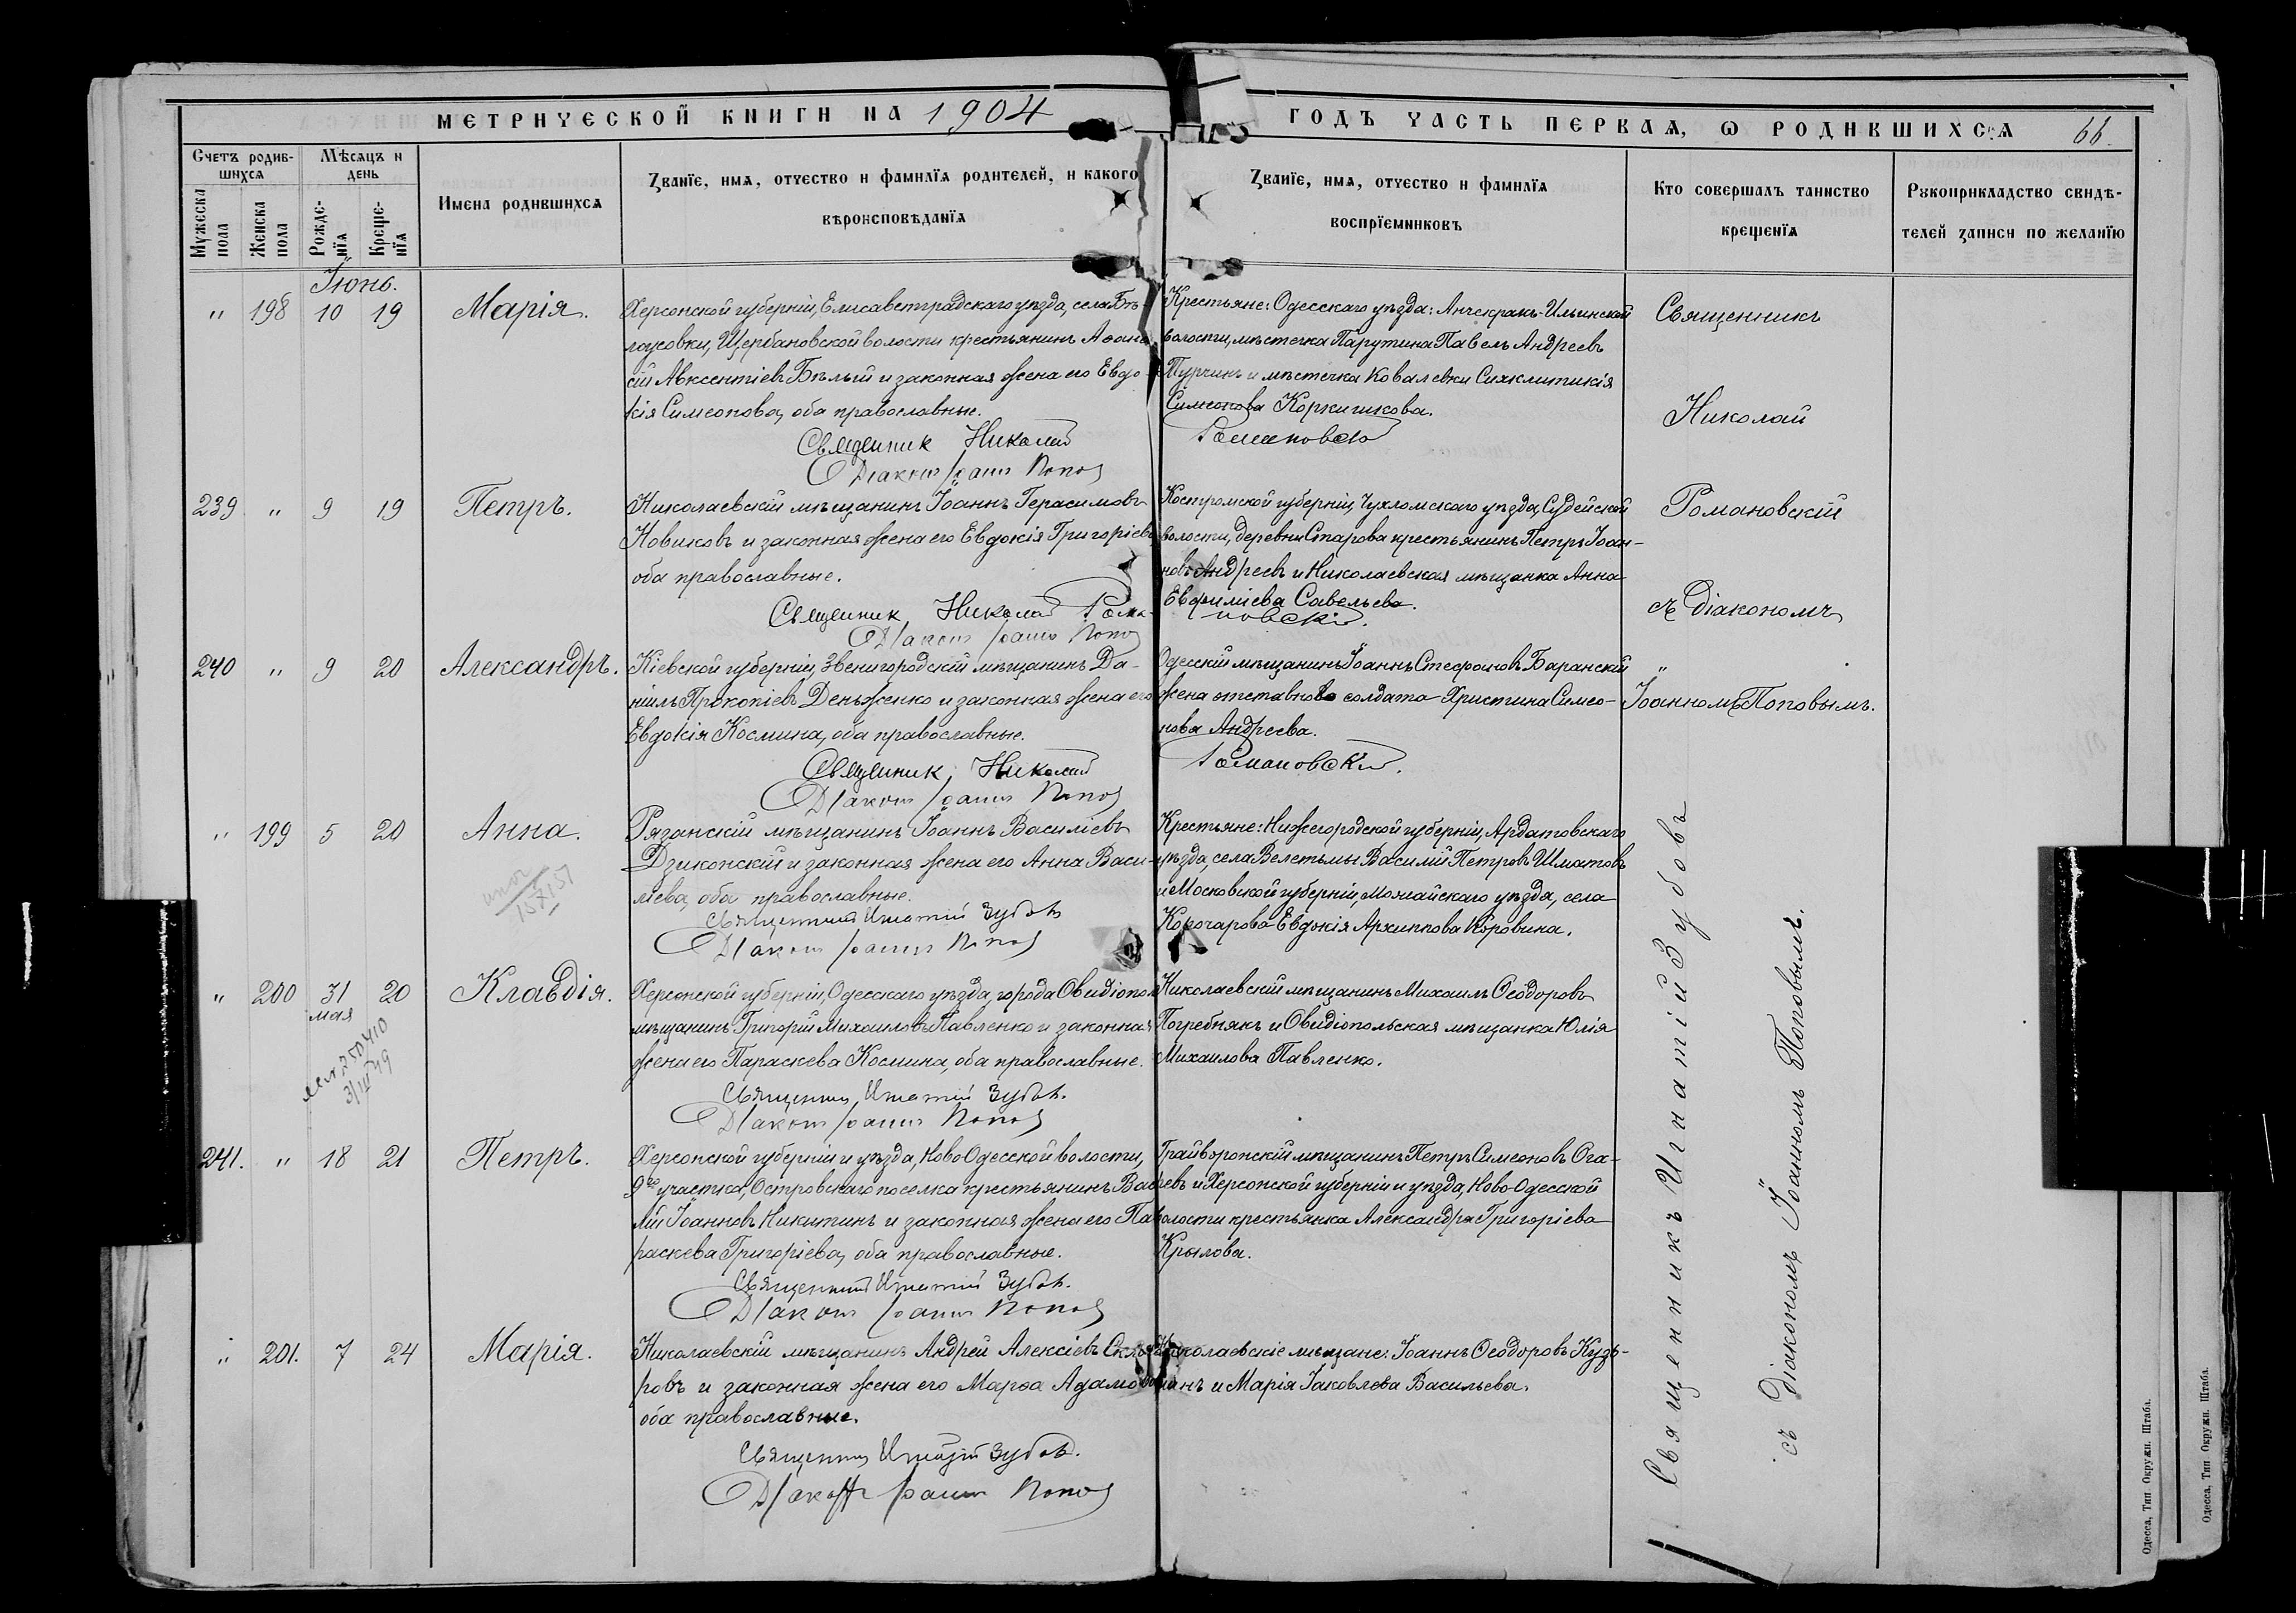 МЕТРИЧЕСКОЙ КНИГИ НА 1904 ГОДЪ ЧАСТЬ ПЕРВАЯ, Ѡ РОДИВШИХСЯ 66.
Счетъ родив-
шихся
Мужеска
пола
Женска
пола
Мѣсяцъ и
день
Рожде-
нїя
Креще-
нїя
Имена родившихся
Званїе, имя, отчество и фамилїя родителей, и какого
вѣроисповѣданїя
Званїе, имя, отчество и фамилїя
воспрїемниковъ
Кто совершалъ таинство
крещенїя
Рукоприкладство свидѣ-
телей записи по желанїю
Іюнь.
" 198 10 19 Марія.
Херсонской губерніи, Елисаветградскаго уѣзда, села Бѣ-
лоусовки, Щербановской волости крестьянинъ Аѳана
сій Авксентіевъ Бѣлый и законная жена его Евдо-
кія Симеонова, оба православные.
Священник Николай
Діаконъ Іоаннъ Попов
Крестьяне: Одесскаго уѣзда: Анчекракъ-Ильинской
волости, мѣстечка Парутина Павелъ Андреевъ
Турчинъ и мѣстечка Ковалевки Синклитикія
Симеонова Коркишкова.
Романовскій
Священникъ
Николай
Романовскій
съ Діакономъ
Іоанномъ Поповымъ.
239 " 9 19 Петръ.
Николаевскій мѣщанинъ Іоаннъ Герасимовъ
Новиковъ и законная жена его Евдокія Григоріева
оба православные.
Священник Николай Рома-
Діаконъ Іоаннъ Попов
Костромской губерніи, Чухломскаго уѣзда, Судейской
волости, деревни Старова крестьянинъ Петръ Іоан-
новъ Андреевъ и Николаевская мѣщанка Анна
Евфиміева Савельева.
новскій.
240 " 9 20 Александръ.
Кіевской губерніи, Звенигородскій мѣщанинъ Да-
ніилъ Прокопіевъ Деньженко и законная жена его
Евдокія Космина, оба православные.
Священник Николай
Діаконъ Іоаннъ Попов
Одесскій мѣщанинъ Іоаннъ Стефановъ Баранскій
жена отставного солдата Христина Симео-
нова Андреева.
Романовскій.
" 199 5 20 Анна.
Рязанскій мѣщанинъ Іоаннъ Василіевъ
Дзиконскій и законная жена его Анна Васи-
ліева, оба православные.
Священник Игнатій Зубовъ
Діаконъ Іоаннъ Попов
Крестьяне: Нижегородской губерніи, Ардатовскаго
уѣзда, села Велетьмы Василій Петровъ Шматовъ
и Московской губерніи, Можайскаго уѣзда, села
Корочарова Евдокія Архиппова Коровина.
" 200 31 мая 20 Клавдія.
Херсонской губерніи, Одесскаго уѣзда, города Овидіопол
мѣщанинъ Григорій Михаиловъ Павленко и законная
жена его Параскева Космина, оба православные.
Священник Игнатій Зубов.
Діаконъ Іоаннъ Попов
Николаевскій мѣщанинъ Михаилъ Ѳеодоровъ
Погребнякъ и Овидіопольская мѣщанка Юлія
Михаилова Павленко.
241. " 18 21 Петръ.
Херсонской губерніи и уѣзда, Ново Одесской волости,
9го участка, Островскаго поселка крестьянинъ Васи
лій Іоанновъ Никитинъ и законная жена его Па
раскева Григоріева, оба православные.
Священник Игнатій Зубов.
Діаконъ Іоаннъ Попов
Грайворонскій мѣщанинъ Петръ Симеоновъ Ога-
ревъ и Херсонской губерніи и уѣзда, Ново-Одесской
волости крестьянка Александра Григоріева
Крылова.
" 201. 7 24 Марія.
Николаевскій мѣщанинъ Андрей Алексіевъ
ровъ и законная жена его Марѳа Адамова
оба православные.
Священник Игнатій Зубов.
Діаконъ Іоаннъ Попов
Николаевскіе мѣщане: Іоаннъ Ѳеодоровъ Кузь-
минъ и Марія Іаковлева Васильева.
Священникъ Игнатій Зубовъ
съ Діакономъ Іоанномъ Поповымъ.
Одесса, Тип Окружн. Штаба.
Одесса, Тип Окружн. Штаба.